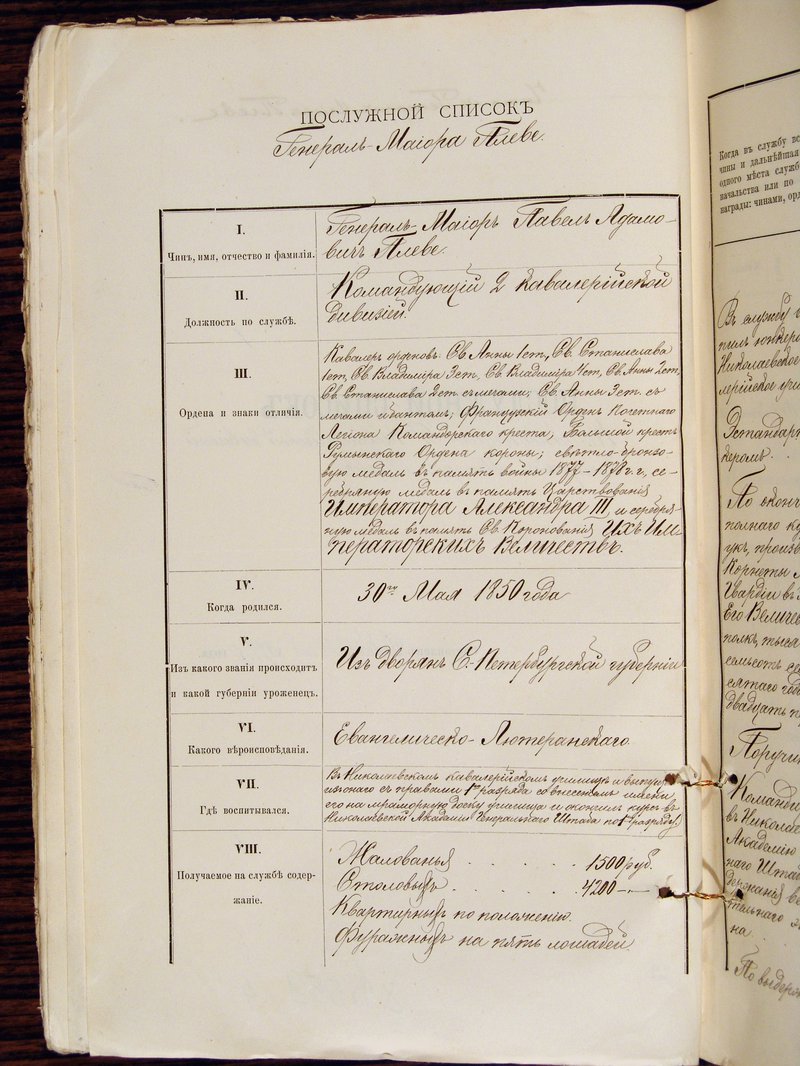 ПОСЛУЖНОЙ СПИСОКЪ
Генералъ-Маіора Плеве.
I.
Чинъ, имя, отчество и фамилія.
Генералъ-Маіоръ Павелъ Адамо-
вичъ Плеве.
II.
Должность по службѣ.
Командующій 2 кавалерійской
дивизіей.
III.
Ордена и знаки отличія.
Кавалеръ орденовъ: Св. Анны 1 ст., Св. Станислава
1 ст., Св. Владиміра 3 ст., Св. Владиміра 4 ст., Св. Анны 2 ст.,
Св. Станислава 2 ст. съ мечами; Св. Анны 3 ст. съ
мечами и бантомъ; Французскій Орденъ Почетнаго
Легіона Командорскаго креста; Большой крестъ
Румынскаго Ордена короны; свѣтло-бронзо-
вую медаль въ память войны 1877-1878 г.г., се-
ребряную медаль въ память Царствованія
Императора Александра III и серебря-
ную медаль въ память Св. Коронованія Ихъ Им-
ператорскихъ Величествъ.
IV.
Когда родился.
30го Мая 1850 года
V.
Изъ какого званія происходитъ
и какой губерніи уроженецъ.
Изъ дворянъ С.-Петербургской губерніи
VI.
Какого вѣроисповѣданія.
Евангелическо-Лютеранскаго.
VII.
Гдѣ воспитывался.
Въ Николаевскомъ кавалерійскомъ училищѣ и
съ правами 1го разряда со внесеніемъ имени
его на мраморную доску училища и окончилъ курсъ въ
Николаевской Академіи Генеральнаго Штаба по 1му разряду.
VIII.
Получаемое на службѣ содер-
жаніе.
Жалованья . . . . . . 1500 руб.
Столовыхъ . . . . . . 4200 —„—
Квартирныхъ по положенію.
Фуражныхъ на пять лошадей
Когда въ службу
чины и дальнѣйшая
одного мѣста служб
начальства или по
награды: чинами, орд
Въ службу
пилъ юнкеро
Николаевское
лерійское учи
Эстандарт
керомъ.
По оконч
полнаго ку
укъ, произв
Корнеты
Гвардіи въ
Его Величе
полкъ, тыся
семьсотъ се
сятаго год
двадцать
Поручи
Командир
въ Николае
Академію
наго Шта
держанія
тельнаго
на.
По выдерж